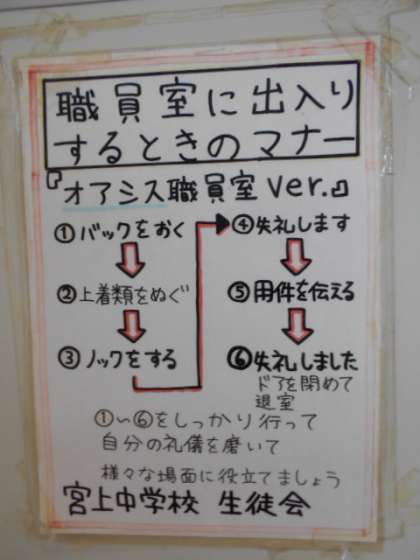 職員室に出入り
するときのマナー
『オアシス職員室ver.』
①バックをおく
②上着類をぬぐ
③ノックをする
④失礼します
⑤用件を伝える
⑥失礼しました
ドアを閉めて
退室
①〜⑥をしっかり行って
自分の礼儀を磨いて
様々な場面に役立てましょう
宮上中学校 生徒会